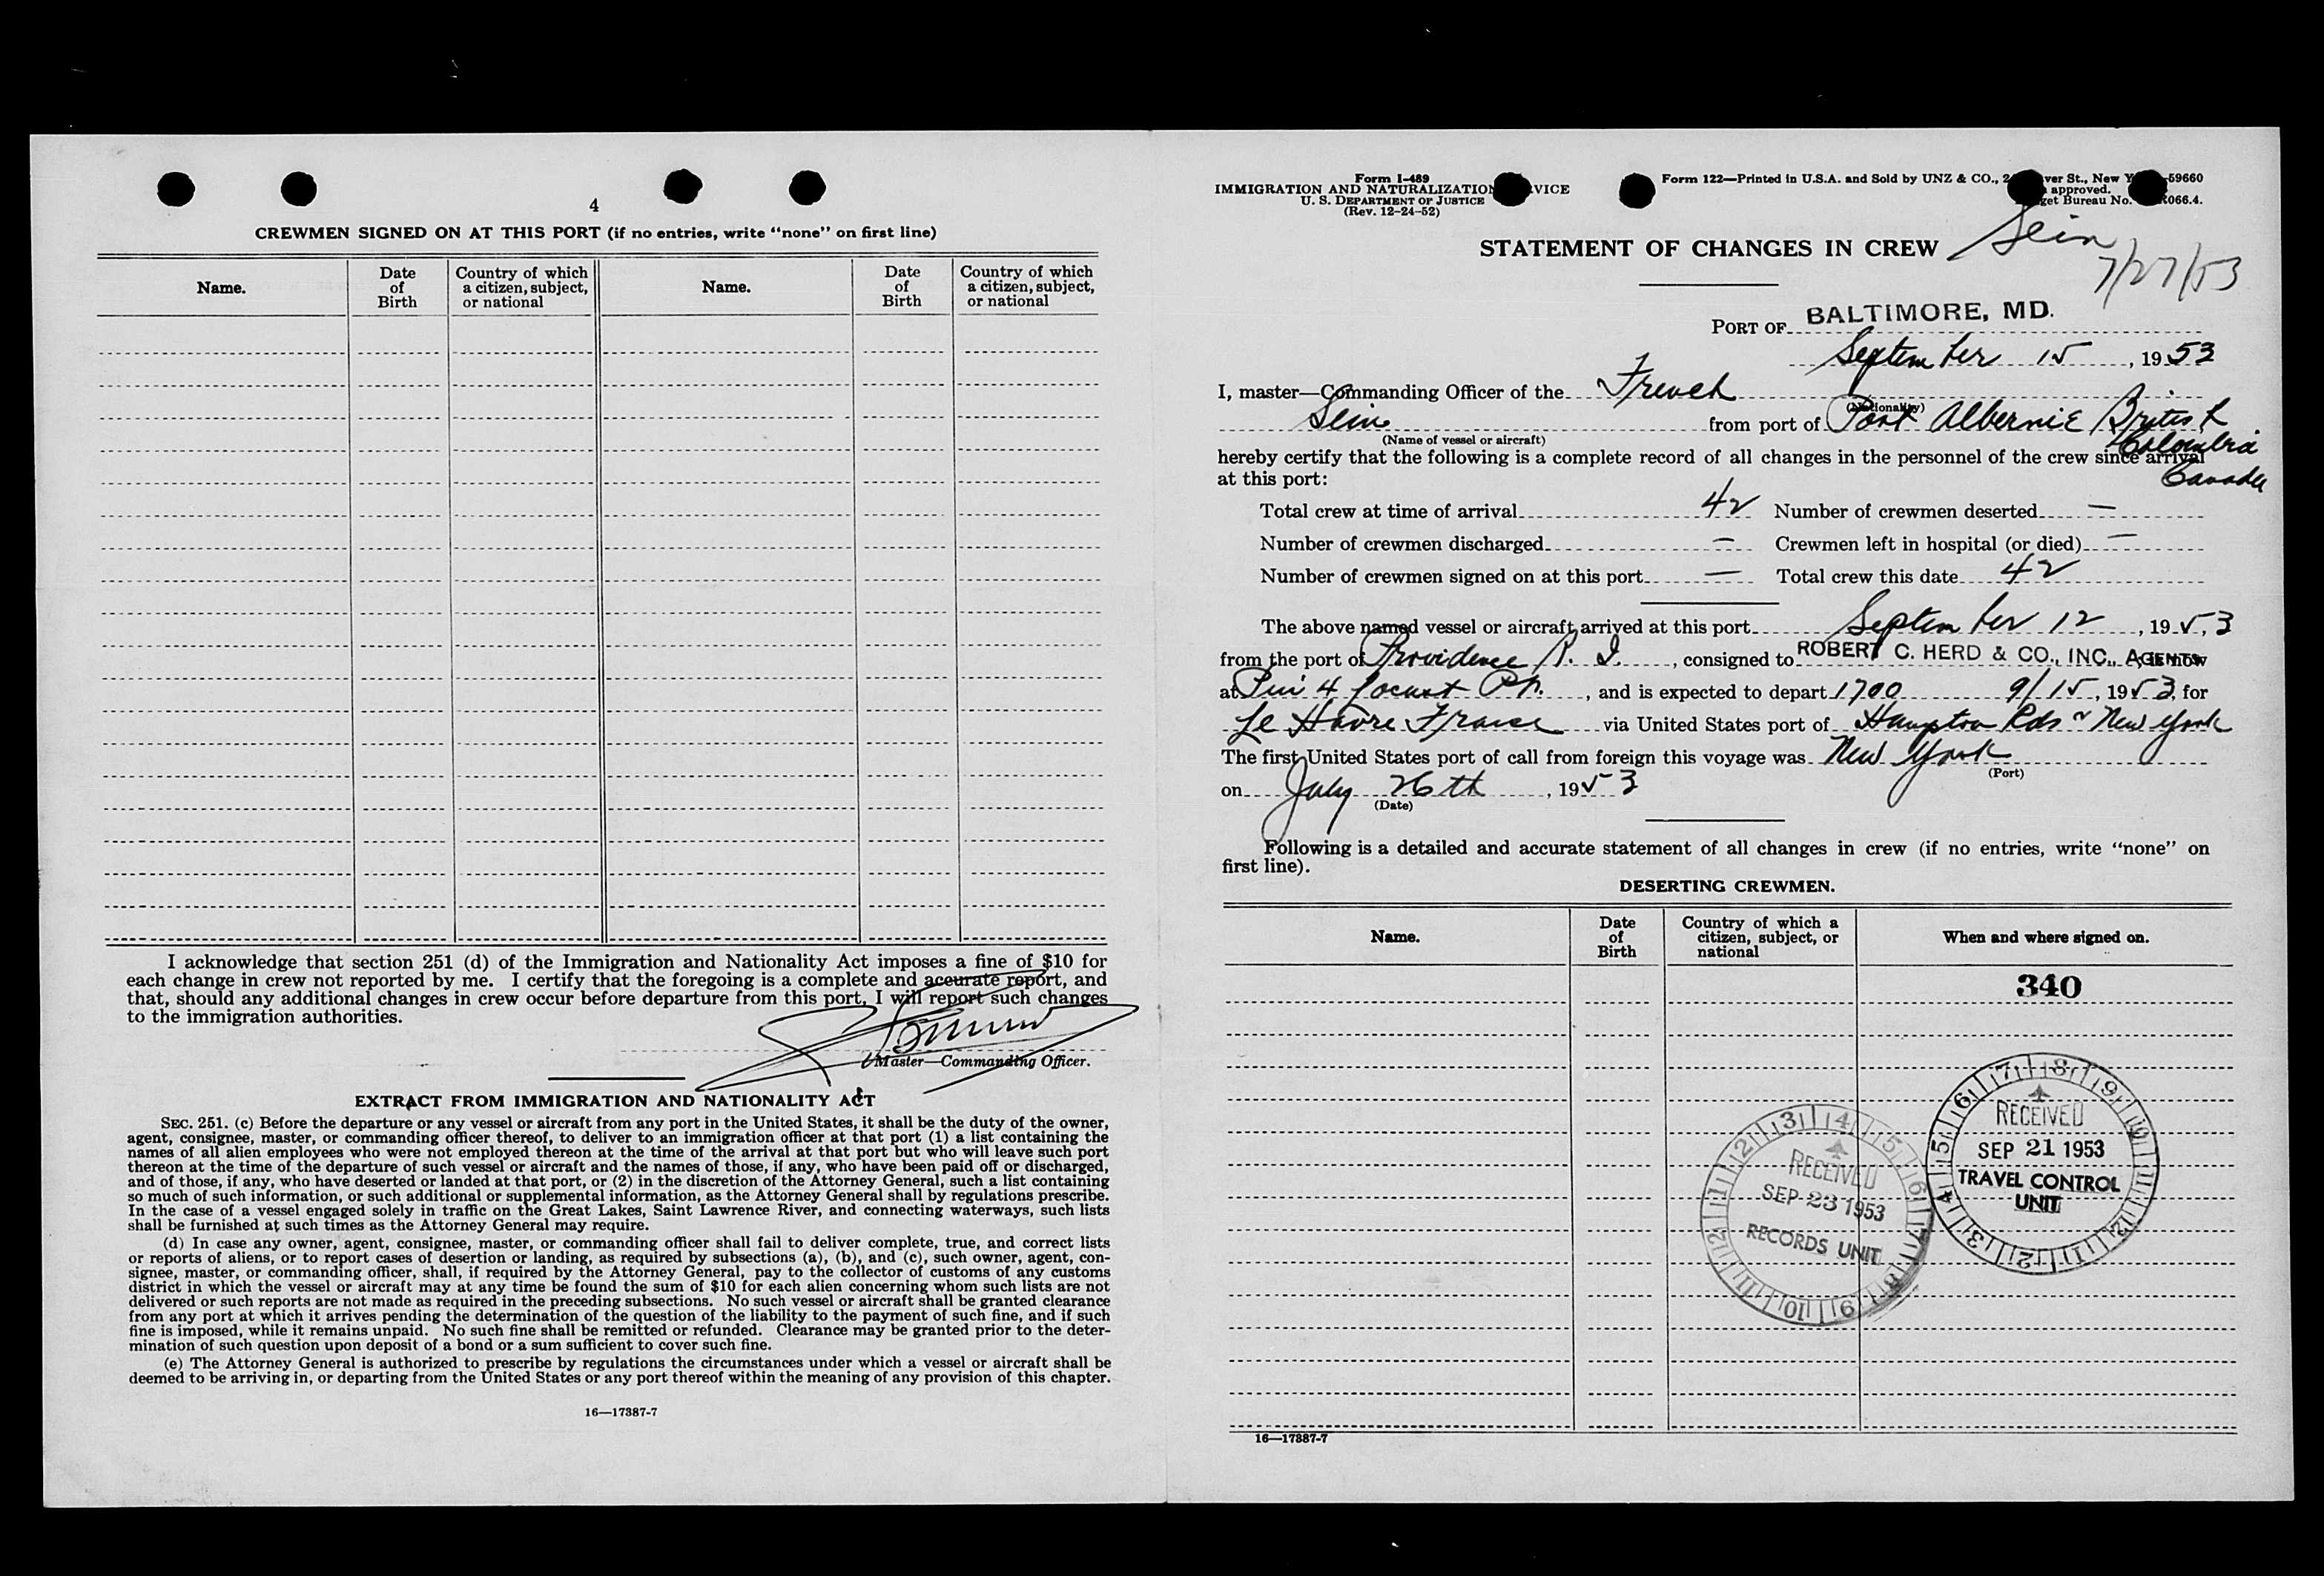 4
CREWMEN SIGNED ON AT THIS PORT (if no entries, write “none” on first line)
Name.
Date of Birth
Country of which a citizen, subject, or national
Name.
Date of Birth
Country of which a citizen, subject, or national
I acknowledge that section 251 (d) of the Immigration and Nationality Act imposes a fine of $10 for
each change in crew not reported by me. I certify that the foregoing is a complete and accurate report, and
that, should any additional changes in crew occur before departure from this port, I will report such changes
to the immigration authorities.
Master—Commanding Officer.
EXTRACT FROM IMMIGRATION AND NATIONALITY ACT
SEC. 251. (c) Before the departure or any vessel or aircraft from any port in the United States, it shall be the duty of the owner,
agent, consignee, master, or commanding officer thereof, to deliver to an immigration officer at that port (1) a list containing the
names of all alien employees who were not employed thereon at the time of the arrival at that port but who will leave such port
thereon at the time of the departure of such vessel or aircraft and the names of those, if any, who have been paid off or discharged,
and of those, if any, who have deserted or landed at that port, or (2) in the discretion of the Attorney General, such a list containing
so much of such information, or such additional or supplemental information, as the Attorney General shall by regulations prescribe.
In the case of a vessel engaged solely in traffic on the Great Lakes, Saint Lawrence River, and connecting waterways, such lists
shall be furnished at such times as the Attorney General may require.
(d) In case any owner, agent, consignee, master, or commanding officer shall fail to deliver complete, true, and correct lists
or reports of aliens, or to report cases of desertion or landing, as required by subsections (a), (b), and (c), such owner, agent, con-
signee, master, or commanding officer, shall, if required by the Attorney General, pay to the collector of customs of any customs
district in which the vessel or aircraft may at any time be found the sum of $10 for each alien concerning whom such lists are not
delivered or such reports are not made as required in the preceding subsections. No such vessel or aircraft shall be granted clearance
from any port at which it arrives pending the determination of the question of the liability to the payment of such fine, and if such
fine is imposed, while it remains unpaid. No such fine shall be remitted or refunded. Clearance may be granted prior to the deter-
mination of such question upon deposit of a bond or a sum sufficient to cover such fine.
(e) The Attorney General is authorized to prescribe by regulations the circumstances under which a vessel or aircraft shall be
deemed to be arriving in, or departing from the United States or any port thereof within the meaning of any provision of this chapter.
16—17387-7
Form I-489
IMMIGRATION AND NATURALIZATION VICE
U. S. DEPARTMENT OF JUSTICE
(Rev. 12-24-52)
Form 122—Printed in U.S.A. and Sold by UNZ & CO., 2 ver St., New Y -59660
approved.
get Bureau No. 066.4.
STATEMENT OF CHANGES IN CREW
Sein
7/27/53
PORT OF BALTIMORE, MD.
September 15, 1953
I, master—Commanding Officer of the French
(Nationality)
Sein from port of Port Albernie British
Colombia
Canada
(Name of vessel or aircraft)
hereby certify that the following is a complete record of all changes in the personnel of the crew since arrival
at this port:
Total crew at time of arrival 42 Number of crewmen deserted —
Number of crewmen discharged — Crewmen left in hospital (or died) —
Number of crewmen signed on at this port — Total crew this date 42
The above named vessel or aircraft arrived at this port September 12, 1953
from the port of Providence R. I., consigned to ROBERT C. HERD & CO., INC., AGENTS, is now
at Pier 4 Locust Pt., and is expected to depart 1700 9/15, 1953, for
Le Havre France via United States port of Hampton Rds & New York
The first United States port of call from foreign this voyage was New York
(Port)
on July 26th, 1953
(Date)
Following is a detailed and accurate statement of all changes in crew (if no entries, write “none” on
first line).
DESERTING CREWMEN.
Name.
Date of Birth
Country of which a citizen, subject, or national
When and where signed on.
340
RECEIVED
SEP 21 1953
TRAVEL CONTROL
UNIT
RECEIVED
SEP 23 1953
RECORDS UNIT
16—17387-7